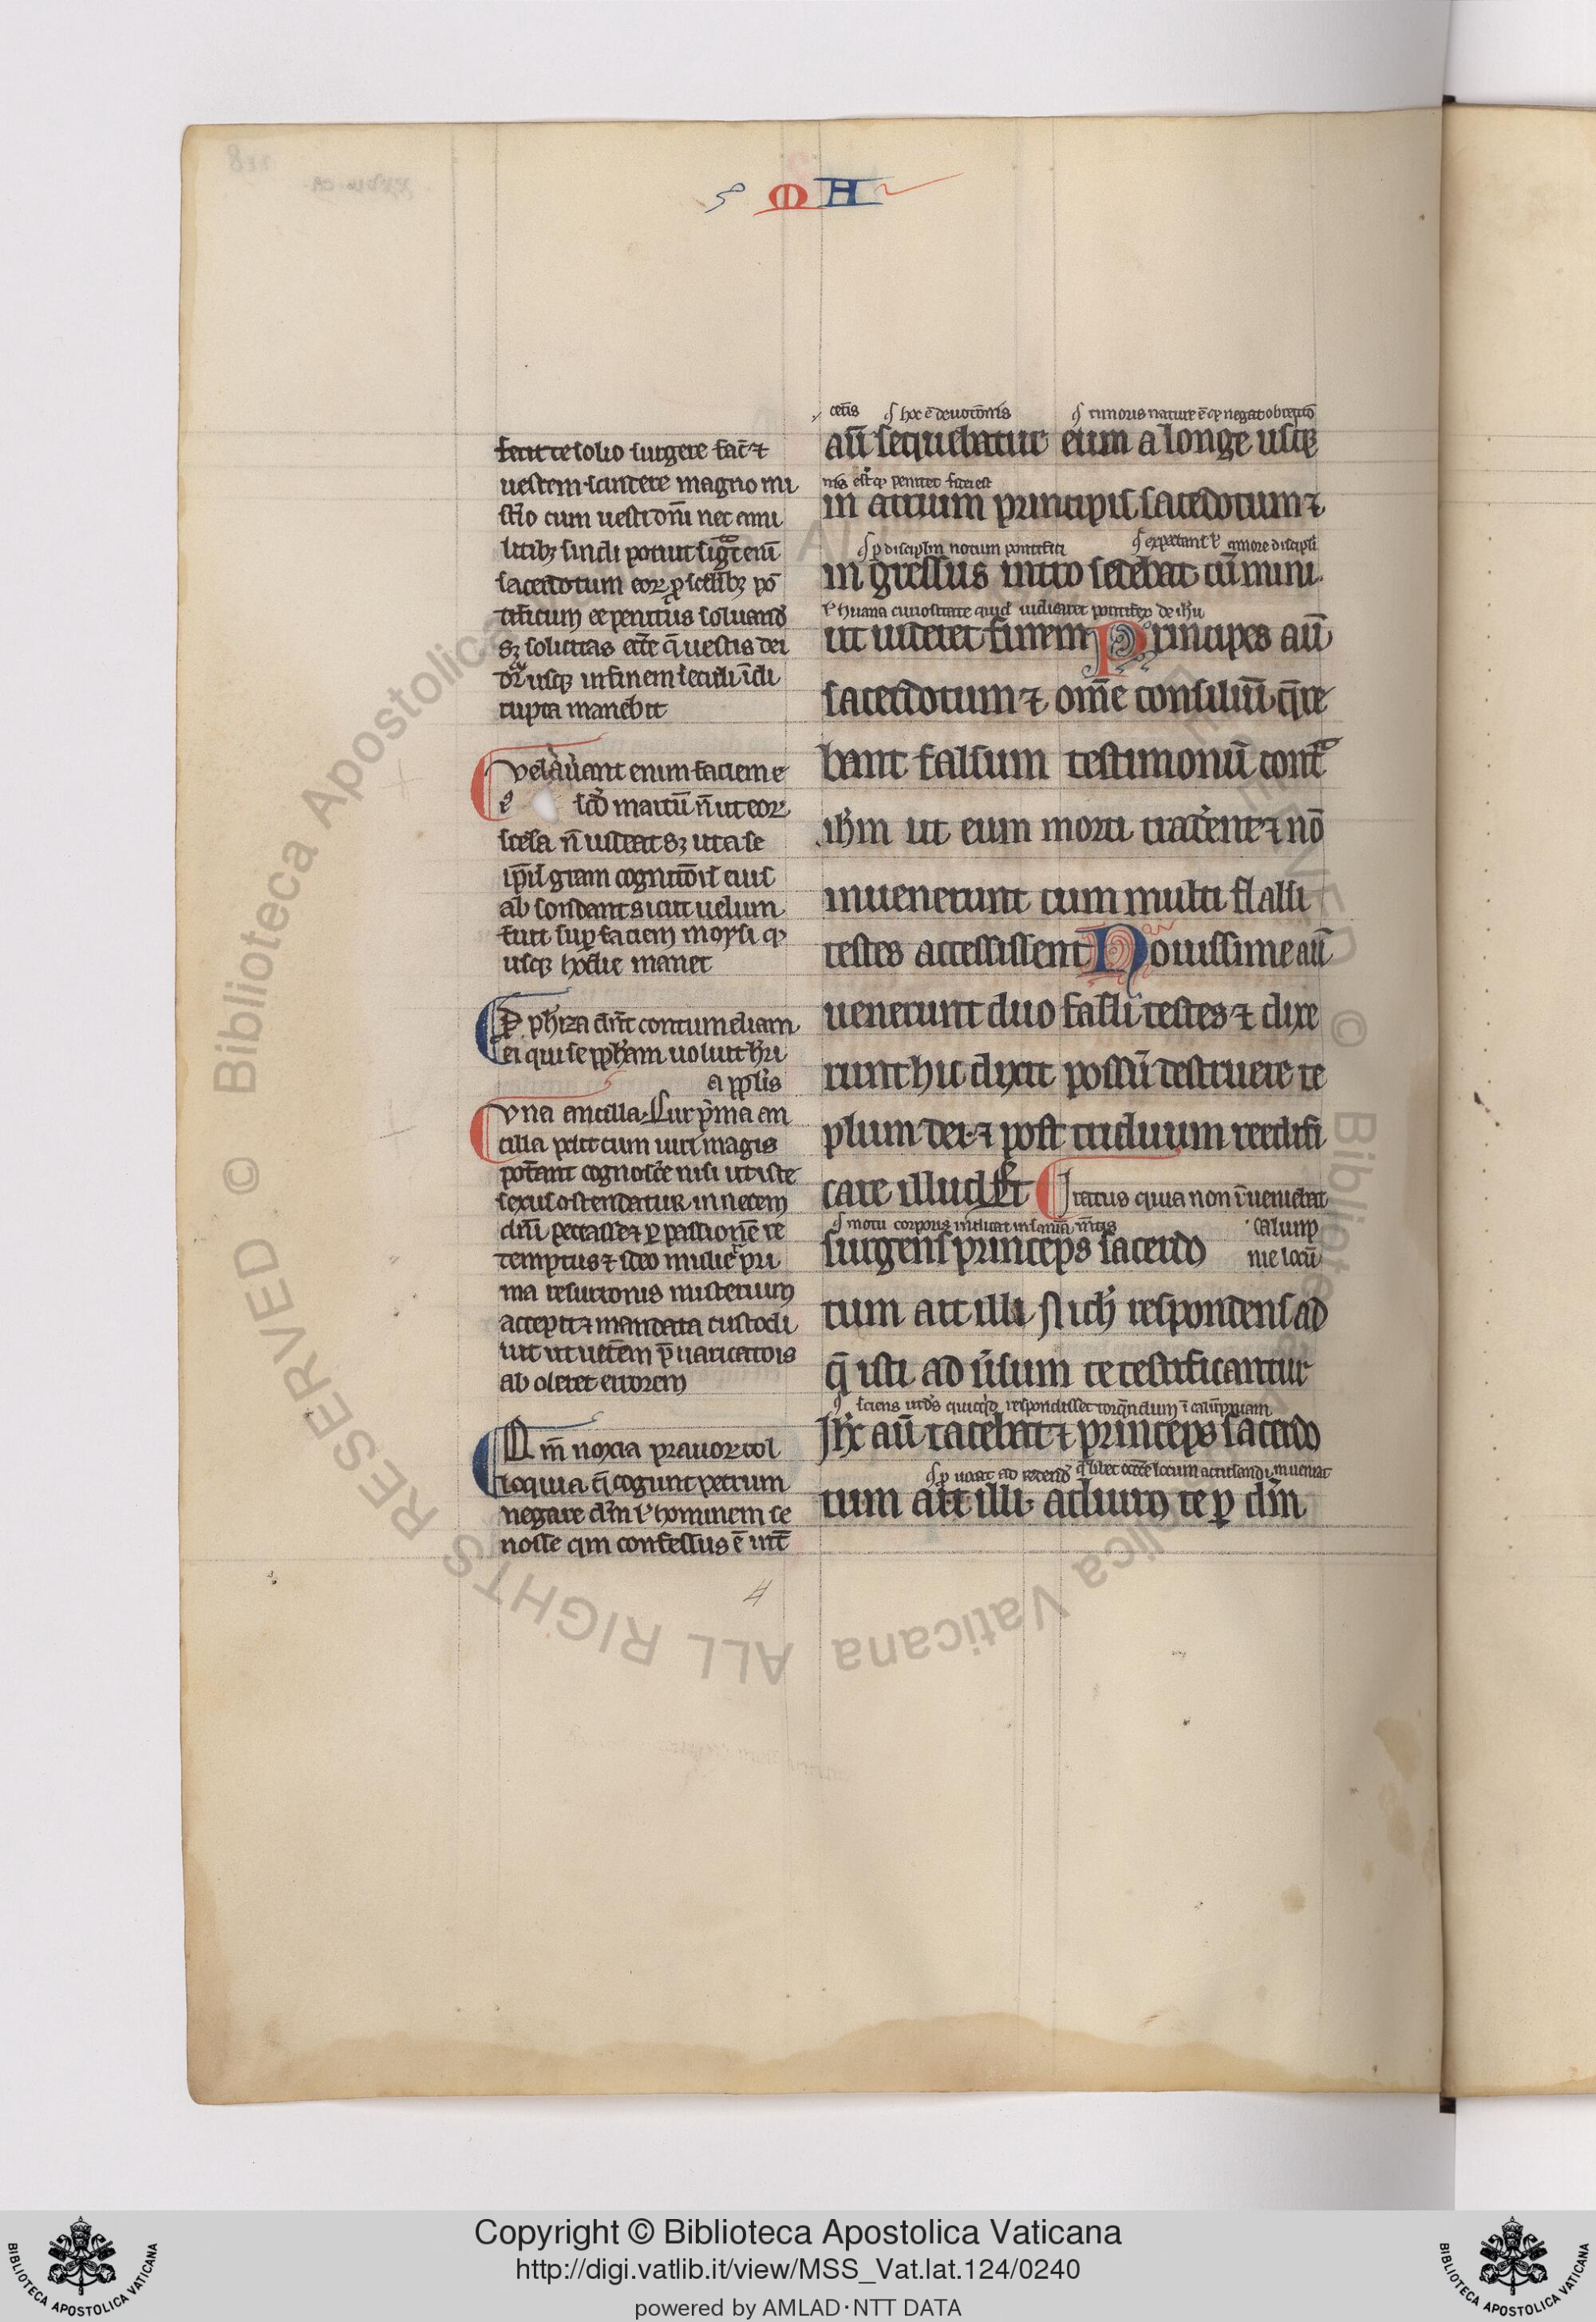 M H
fecit te solio surgere fac̄ ⁊
uestem scindere magno mi
st̓io cum uesti dn̄i nec a mi
litibꝫ sindi potuit sig̅t̅ eni̅
sacerdotum eoꝝ ꝓ scelībꝫ po̅
tificum ee̅ penitus soluand̓
sꝫ soliditas ecc̄e q̄ uestis dei
usqꝫ in finem seculi i̅
rupta manebit
velauant enim faciem e
i᷒ ſcd̓ marcu̅ n̅ ut eoꝝ
scela n̅ uideat sꝫ ut a se
ip̄is gr̄am cognitōis eius
abscondant sicut uelum
fuit sup̱ faciem moysi qꝫ
usqꝫ hodie manet
P ph̓iza dn̄t contumeliam
ei qui se ꝓph̓am uoluit h̓ri
a pp̄lis
vna ancilla. Cur p̓ma an
cilla ꝓdit cum uiri magis
pot̓ant cognosc̓e nisi ut iste
sexus ostendatur in necem
dn̄i peccasse ⁊ p̱ passione̅ re
temptus ⁊ ideo mulie᷑ pri
ma resurcionis misterium
accepit ⁊ mandata custodi
uit ut uet̓em p̄uaricatōis
aboleret errorem
Q̅m̅ noxia prauoꝝ col
loquia q̄ cogunt petrum
negare dn̄m ł hominem se
nosse qm confessus e̅ int̓
q̓ hoc e̅ deuotōnis
q̓ timoris nature e̅ qꝫ negat
au̅ sequebatur eum a longe usqꝫ
penitet fidei est
in atrium principis sacerdotum ⁊
q̓ p̱ discipl̄m notum pontifici
q̓ expectant ł amore discipli
in gressus intro sedebat cu̅ mini.
ł huāna curiositate quid iudicaret pontifex de ih̓u
ut uideret finem Principes au̅
sacerdotum ⁊ om̅e consiliu̅ q̄re
bant falsum testimoniu̅ cont̓
ih̓m ut eum morti trad̓ent ⁊ no̅
inuenerunt cum multi flalsi
testes accessissent Nouissime au̅
uenerunt duo falsi testes ⁊ dixe
runt hic dixit possu̅ destruere te
plum dei. ⁊ post triduum reedifi
care illud Et
Iratus quia non i̅ueniebat
calump
nie locu̅
q̓ motu corporis indicat insania̅ m̅tis
surgens princeps sacerdo
tum ait illi. Nich̓ respondens ad
q̄ isti ad u̓sum te testificantur
q̓ sciens ut d̓s quicq̓d respondisset torq̅ndum i̅ calu̅pniam
Ih̓c au̅ tacebat ⁊ princeps sacerdo
q̓ libet occ̓e locum accusandi inueniat
tum ait illi. adiuro te p̱ dn̄m
Copyright © Biblioteca Apostolica Vaticana
http://digi.vatlib.it/view/MSS_Vat.lat.124/0240
powered by AMLAD·NTT DATA
BIBLIOTECA APOSTOLICA VATICANA
BIBLIOTECA APOSTOLICA VATICANA
© Biblioteca Apostolica Vaticana ALL RIGHTS RESERVED